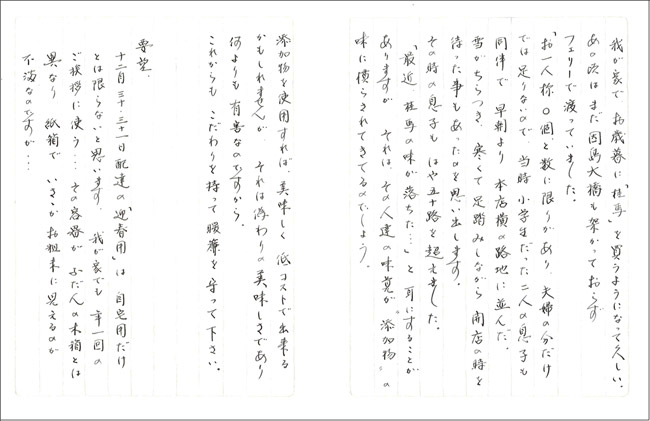 我が家で お歳暮に「桂馬」を買うようになって久しい。
あの頃はまだ因島大橋も架かっておらず
フェリーで渡っていました。
「お一人様〇個」と数に限りがあり、夫婦の分だけ
では足りないので、当時小学生だった二人の息子も
同伴で 早朝より 本店横の路地に並んだ。
雪がちらつき、寒くて足踏みしながら 開店の時を
待った事もあったのを思い出します。
その時の息子も はや五十路を超えました。
「最近 桂馬の味が落ちた…」と耳にすることが
ありますが、それは、その人達の味覚が“添加物”の
味に慣らされてきてるのでしょう。
添加物を使用すれば、美味しく 低コストで出来る
かもしれませんが、それは偽わりの美味しさであり
何よりも有害なのですから。
これからも こだわりを持って暖簾を守って下さい。
要望、
十二月三十・三十一日配達の「迎春用」は 自宅用だけ
とは限らないと思います。我が家でも 年一回の
ご挨拶に使う…その容器が ふだんの木箱とは
異なり 紙箱で いささかお粗末に見えるのが
不満なのですが…